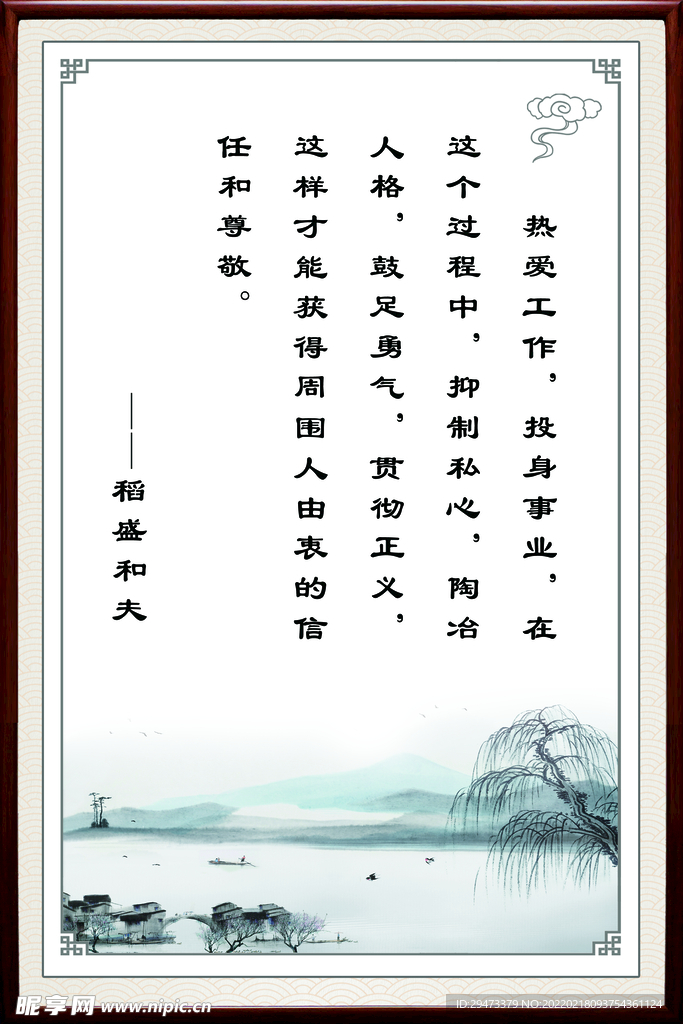 热爱工作，投身事业，在
这个过程中，抑制私心，陶冶
人格，鼓足勇气，贯彻正义，
这样才能获得周围人由衷的信
任和尊敬。
——稻盛和夫
昵享网 www.nipic.cn
ID:29473379 NO:20220218093754361124